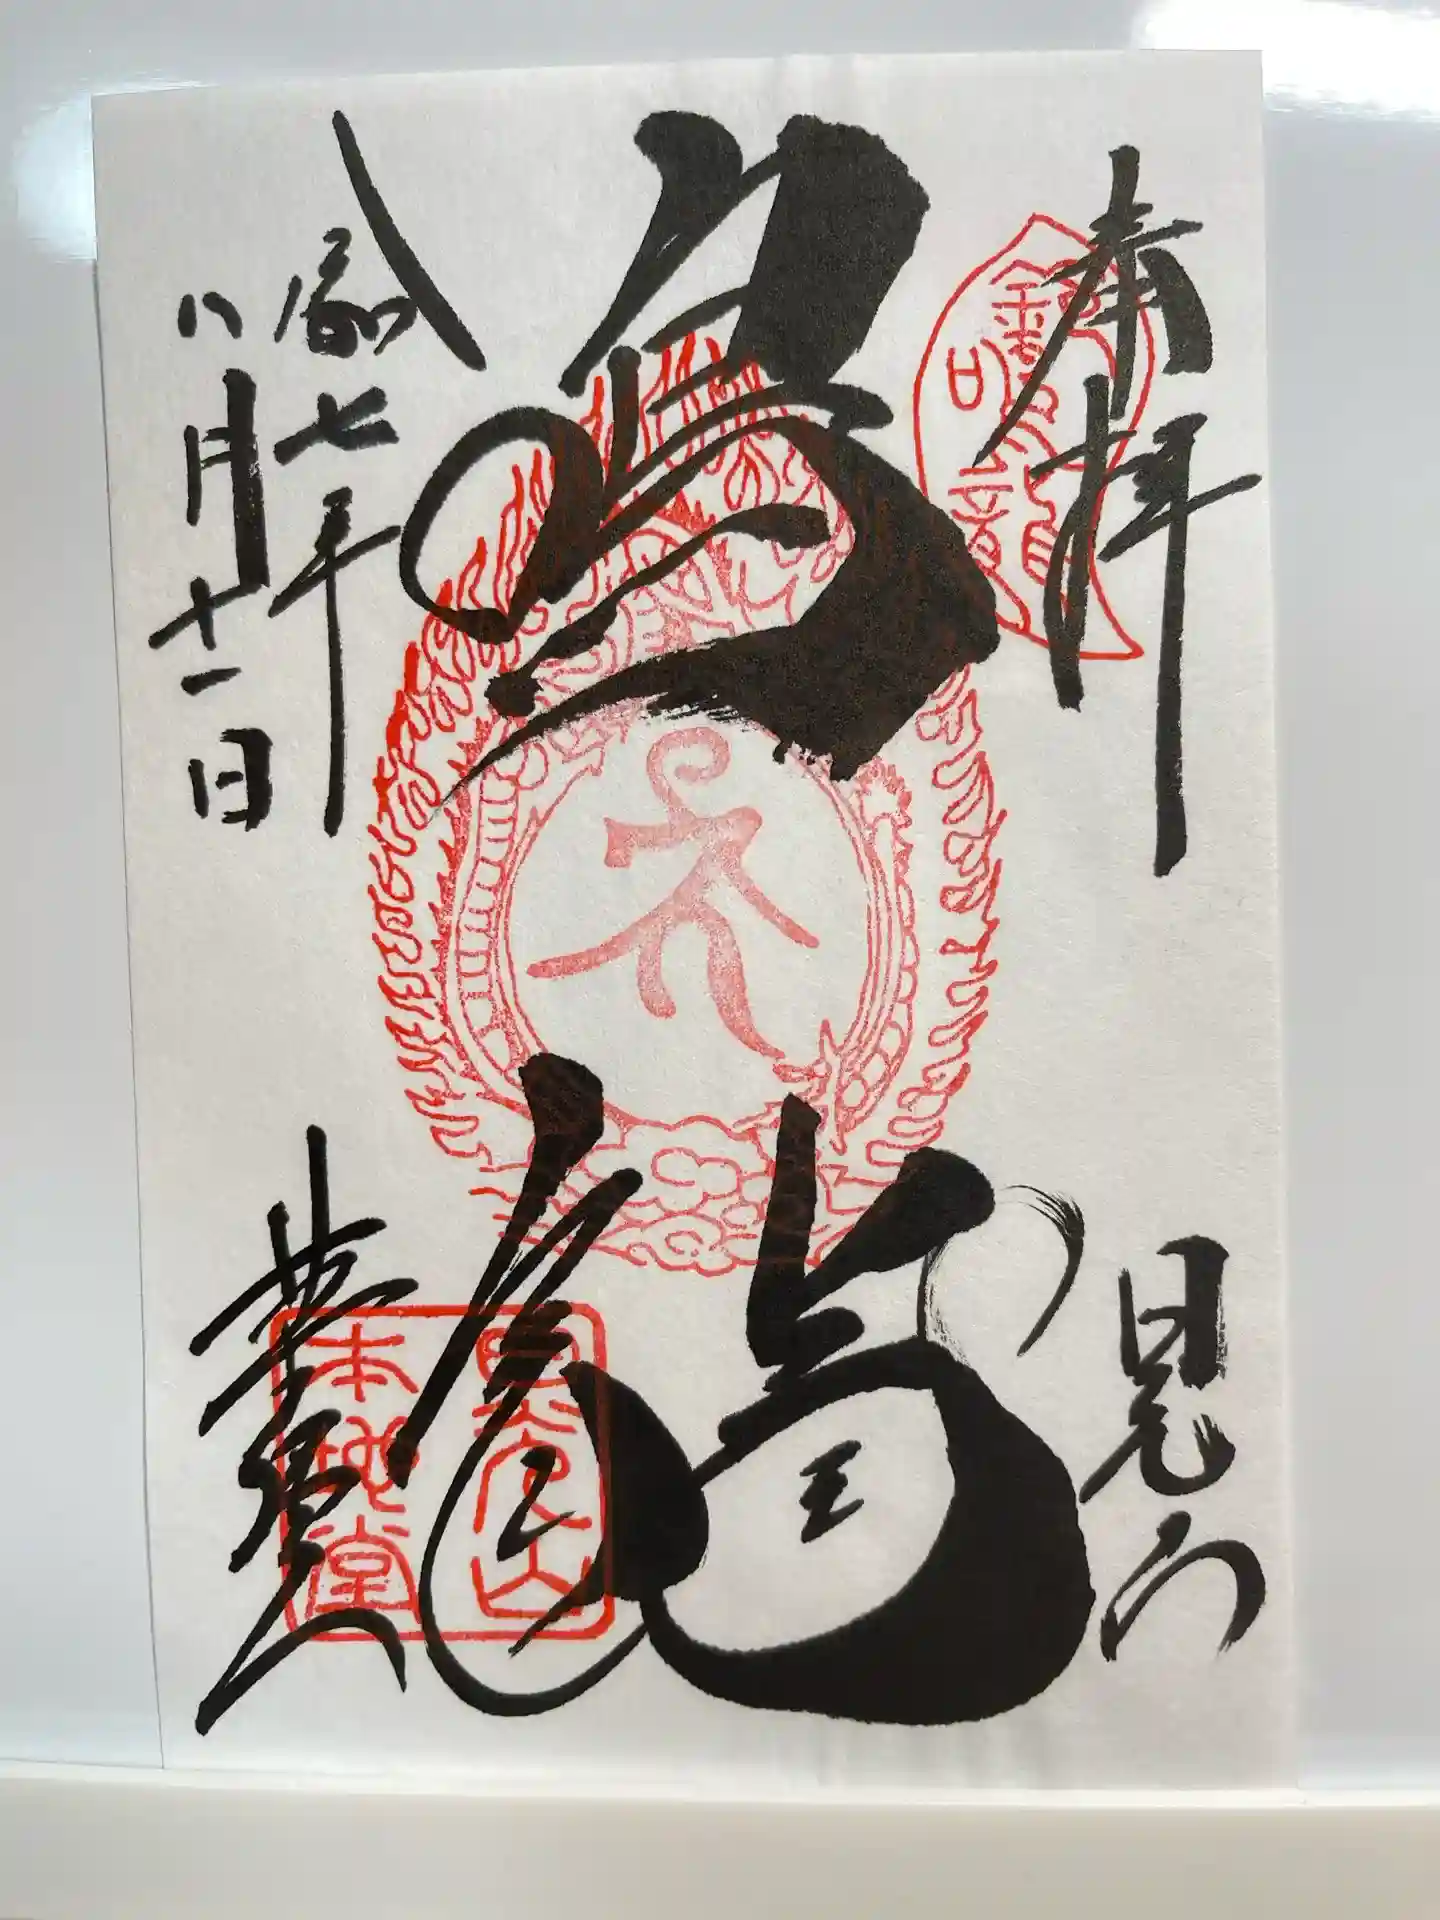 奉拝
日光山
鳴龍
令和七年
八月十一日
薬師堂
日光山
本地堂